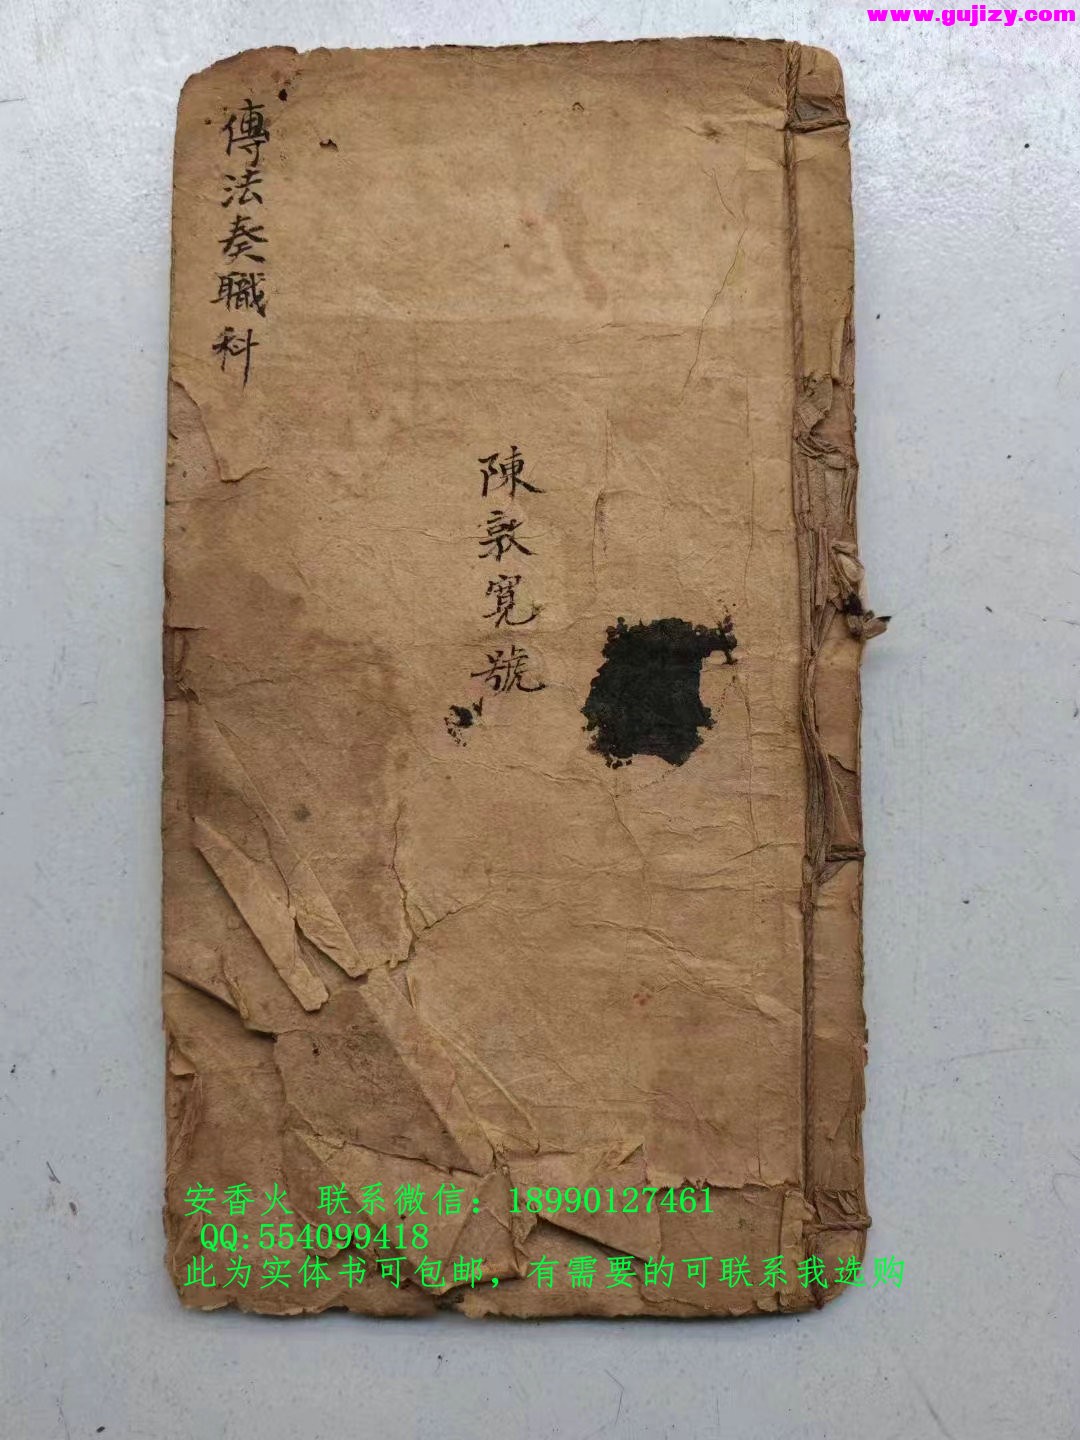 www.gujizy.com
傳法奏職科
陳敦寛號
安香火 联系微信：18990127461
QQ:554099418
此为实体书可包邮，有需要的可联系我选购